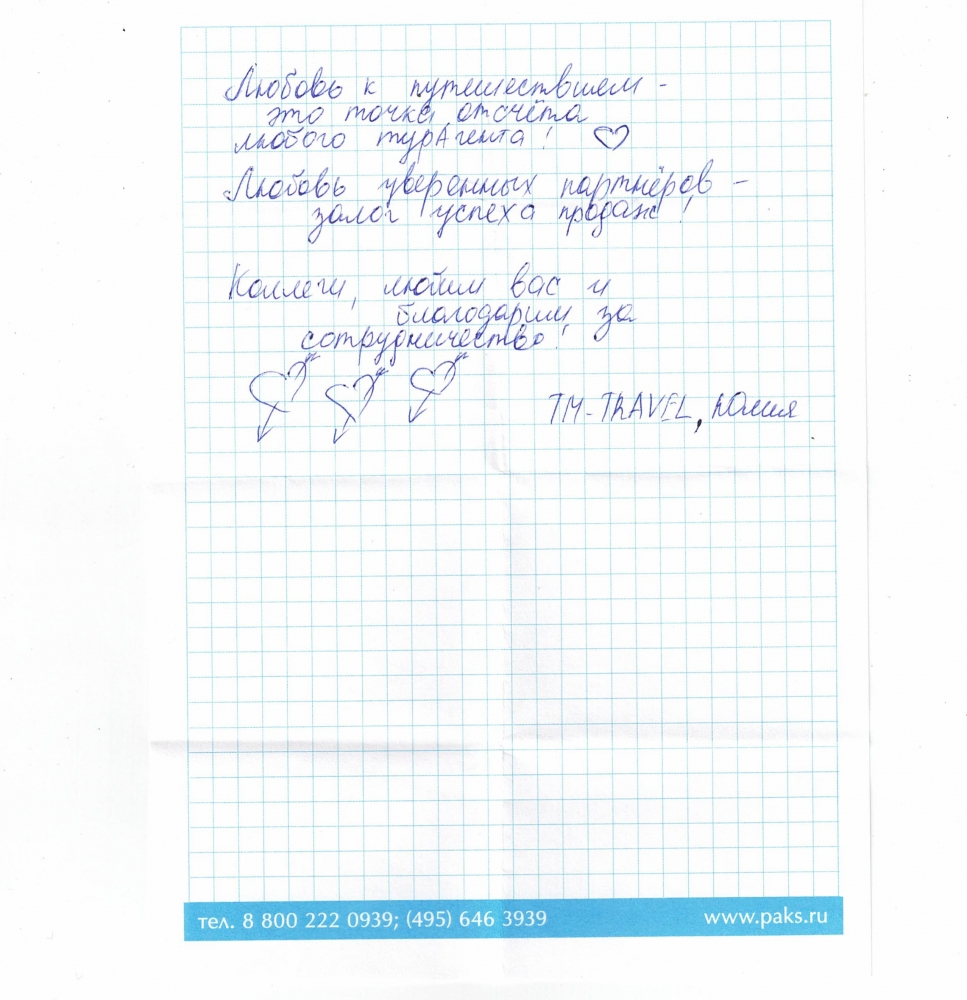 Любовь к путешествием -
это точка отсчёта
любого турАгента!
Любовь уверенных партнёров -
залог успеха продаж!
Коллеги, любим вас и
благодарим за
сотрудничество!
TM-TRAVEL, Юлия
тел. 8 800 222 0939; (495) 646 3939
www.paks.ru